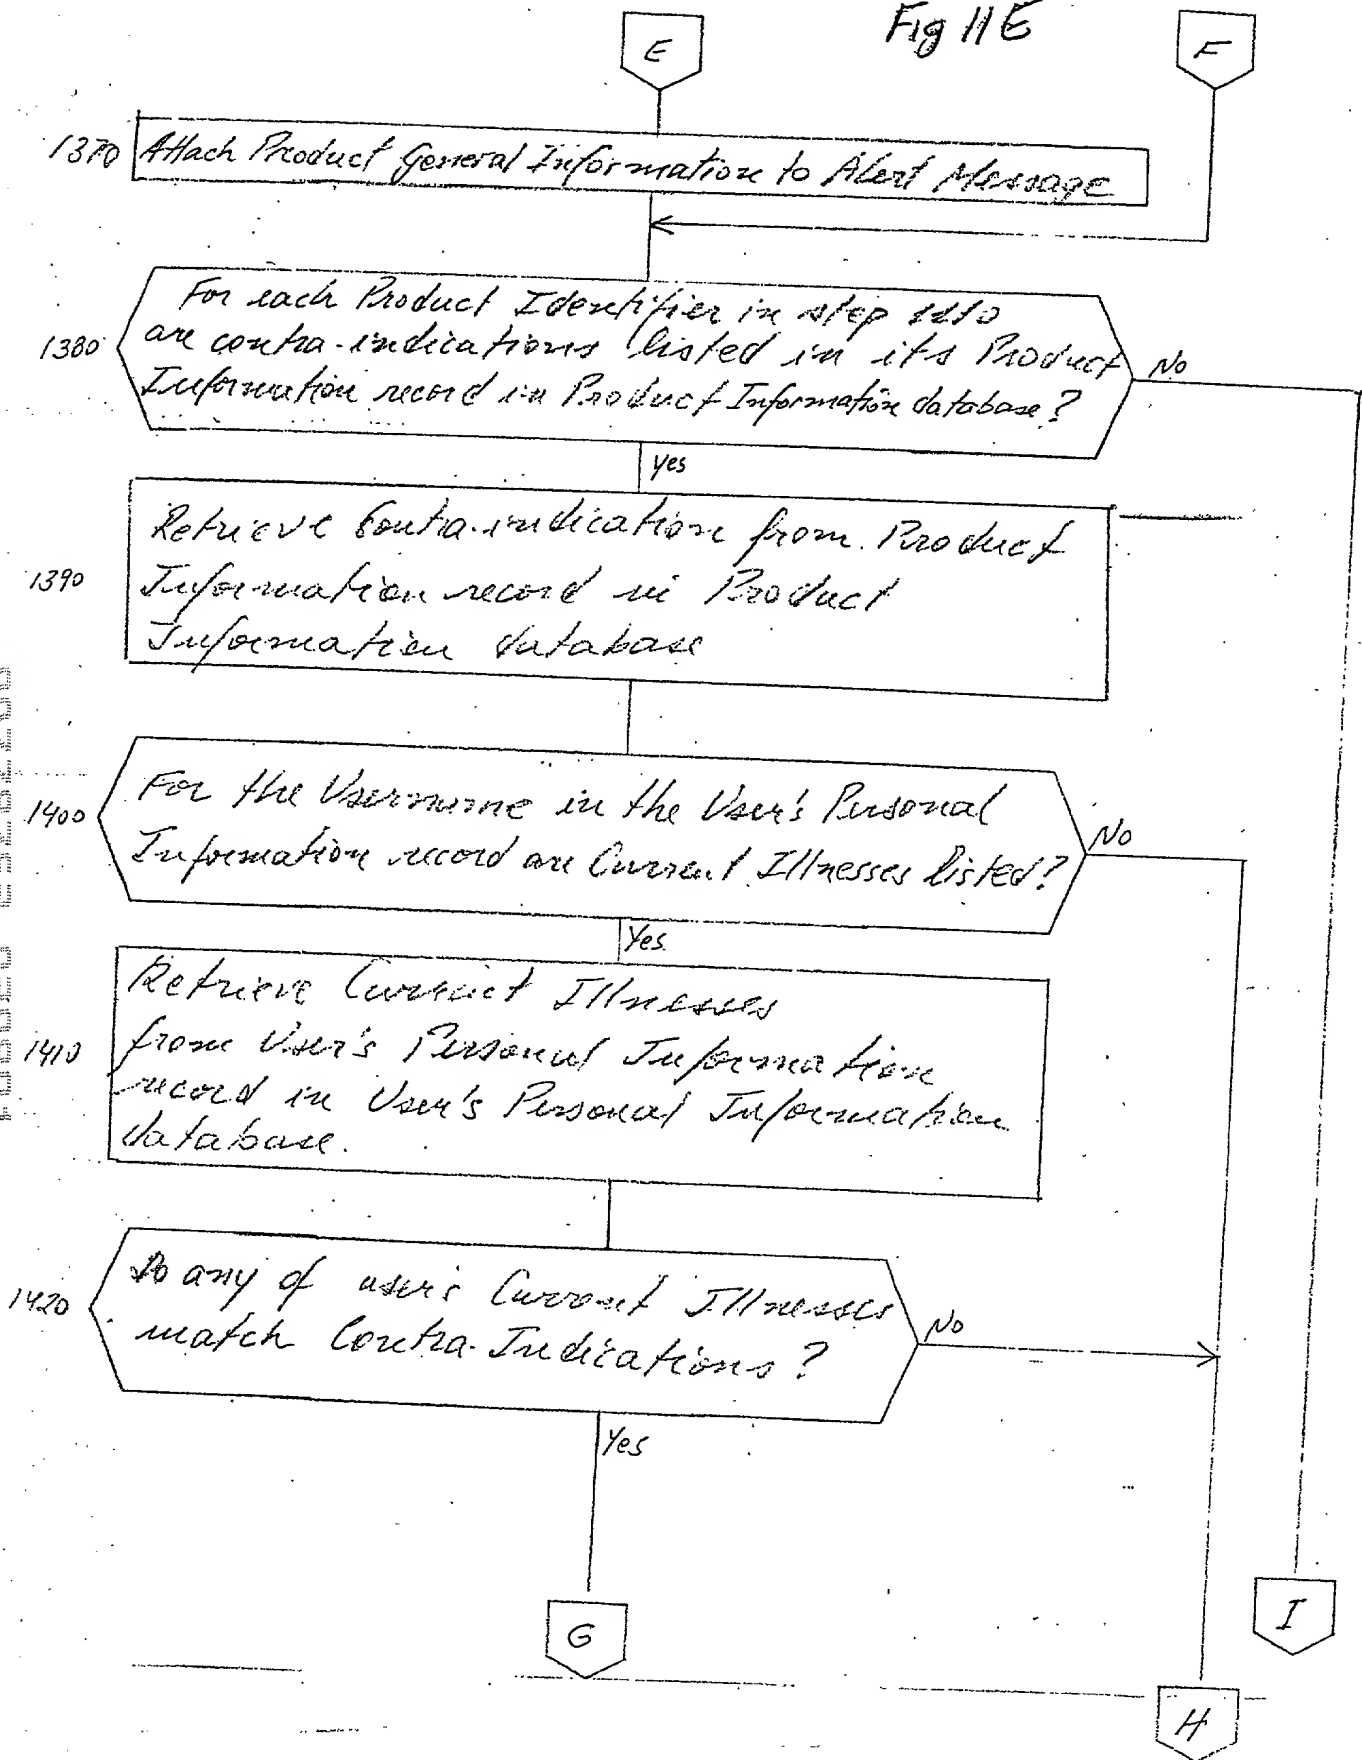 Fig 11E
E
F
1370 Attach Product General Information to Alert Message
For each Product Identifier in step
1380 are contra-indications listed in its Product No
Information record in Product Information database?
yes
Retrieve Contra-indication from Product
1390 Information record in Product
Information database
For the Username in the User's Personal
1400 Information record are Current Illnesses listed? No
Yes
Retrieve Current Illnesses
1410 from User's Personal Information
record in User's Personal Information
database.
Do any of user's Current Illnesses
1420 match Contra-Indications? No
Yes
G
I
H